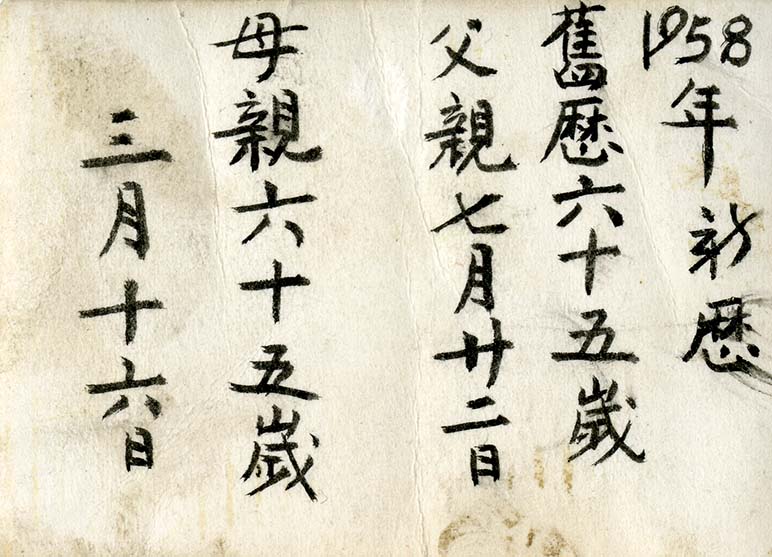 1958年新歷
舊歷六十五歲
父親七月廿二日
母親六十五歲
三月十六日